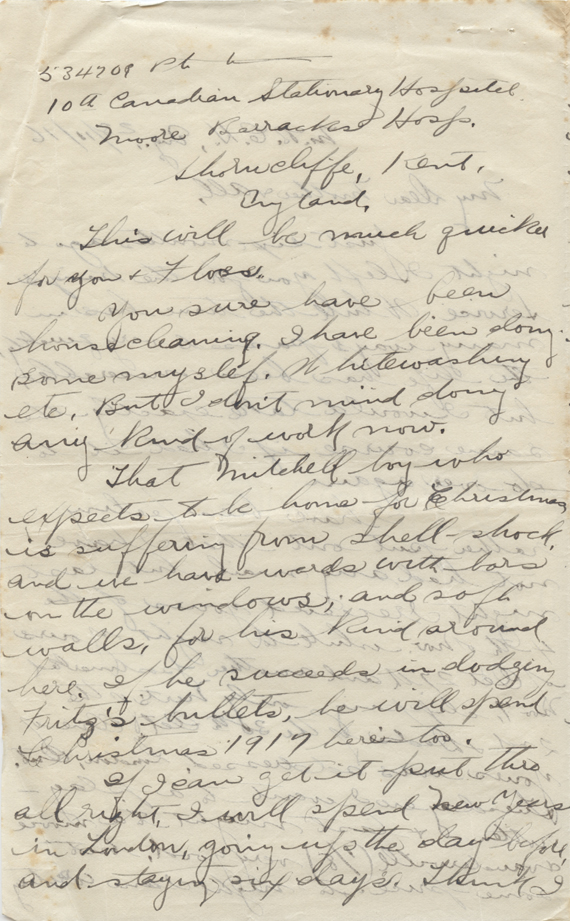 534709 Pte
10th Canadian Stationary Hospital
Moore Barracks Hosp.
Shorncliffe, Kent,
England,
This will be much quicker
for you & Floss.
You sure have been
housecleaning. I have been doing
some myslef. Whitewashing
etc. But I don't mind doing
any kind of work now.
That Mitchell boy who
expects to be home for Christmas
is suffering from shell-shock,
and we have wards with bars
on the windows; and soft
walls, for his kind around
here. If he succeeds in dodging
Fritz's bullets, he will spend
Christmas 1917 here too.
If I can get it put thro
all right, I will spend New Years
in London, going up the day before,
and staying six days. Think I